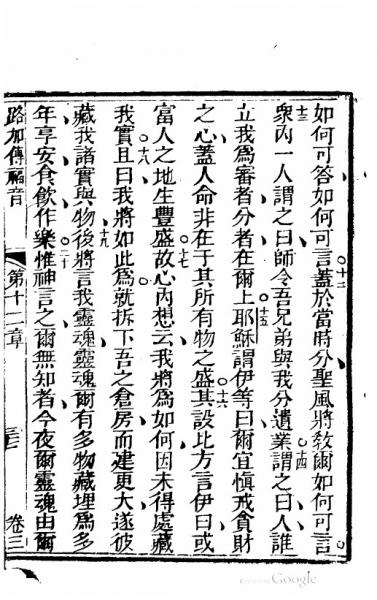 如何可答如何可言十二蓋於當時分聖風將教爾如何可言○十三
衆內一人謂之曰師令吾兄弟與我分遺業○十四謂之曰人誰
立我爲審者分者在爾上○十五耶穌謂伊等曰爾宜慎戒貪財
之心蓋人命非在于其所有物之盛○十六其設比方言伊曰或
富人之地生豐盛○十七故心內想云我將爲如何因未得處藏
我實○十八且曰我將如此爲就拆下吾之倉房而建更大遂彼
藏我諸實與物○十九後將言我靈魂靈魂爾有多物藏埋爲多
年享安食飲作樂○二十惟神言之爾無知者今夜爾靈魂由爾
路加傳福音 第十二章 三三 卷三
Google